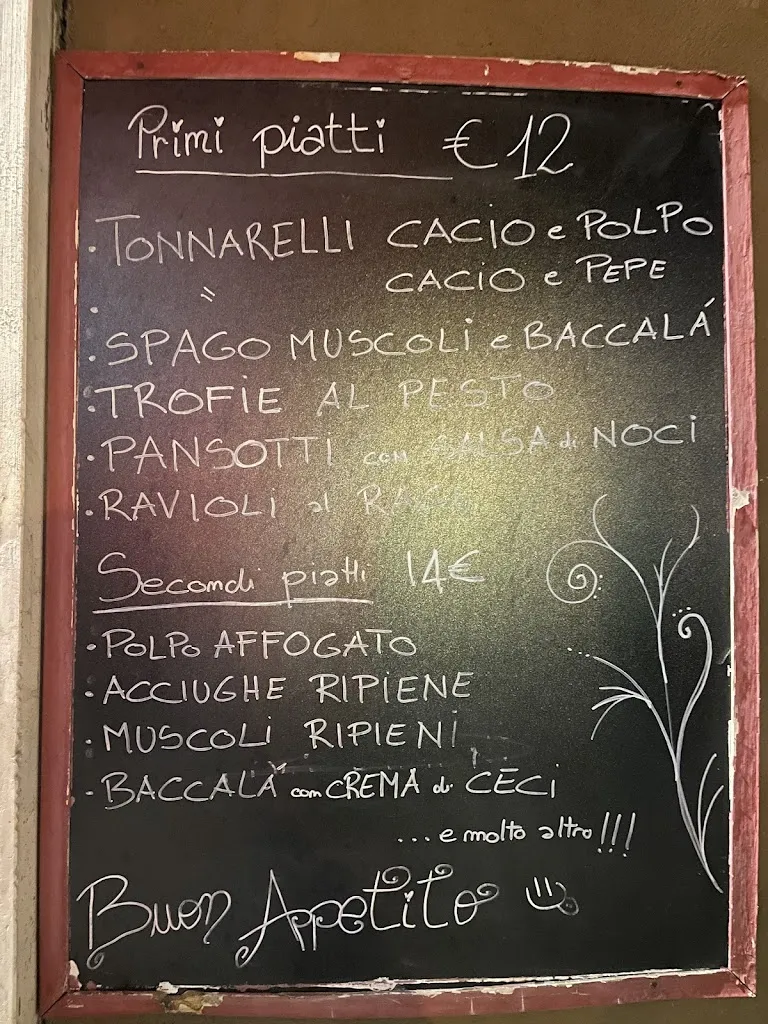 Primi piatti € 12
· TONNARELLI CACIO e POLPO
· " CACIO e PEPE
· SPAGO MUSCOLI e BACCALÁ
· TROFIE AL PESTO
· PANSOTTI con SALSA di NOCI
· RAVIOLI al RAGÙ
Secondi piatti 14€
· POLPO AFFOGATO
· ACCIUGHE RIPIENE
· MUSCOLI RIPIENI
- BACCALÀ con CREMA di CECI
... e molto altro!!!
Buon Appetito